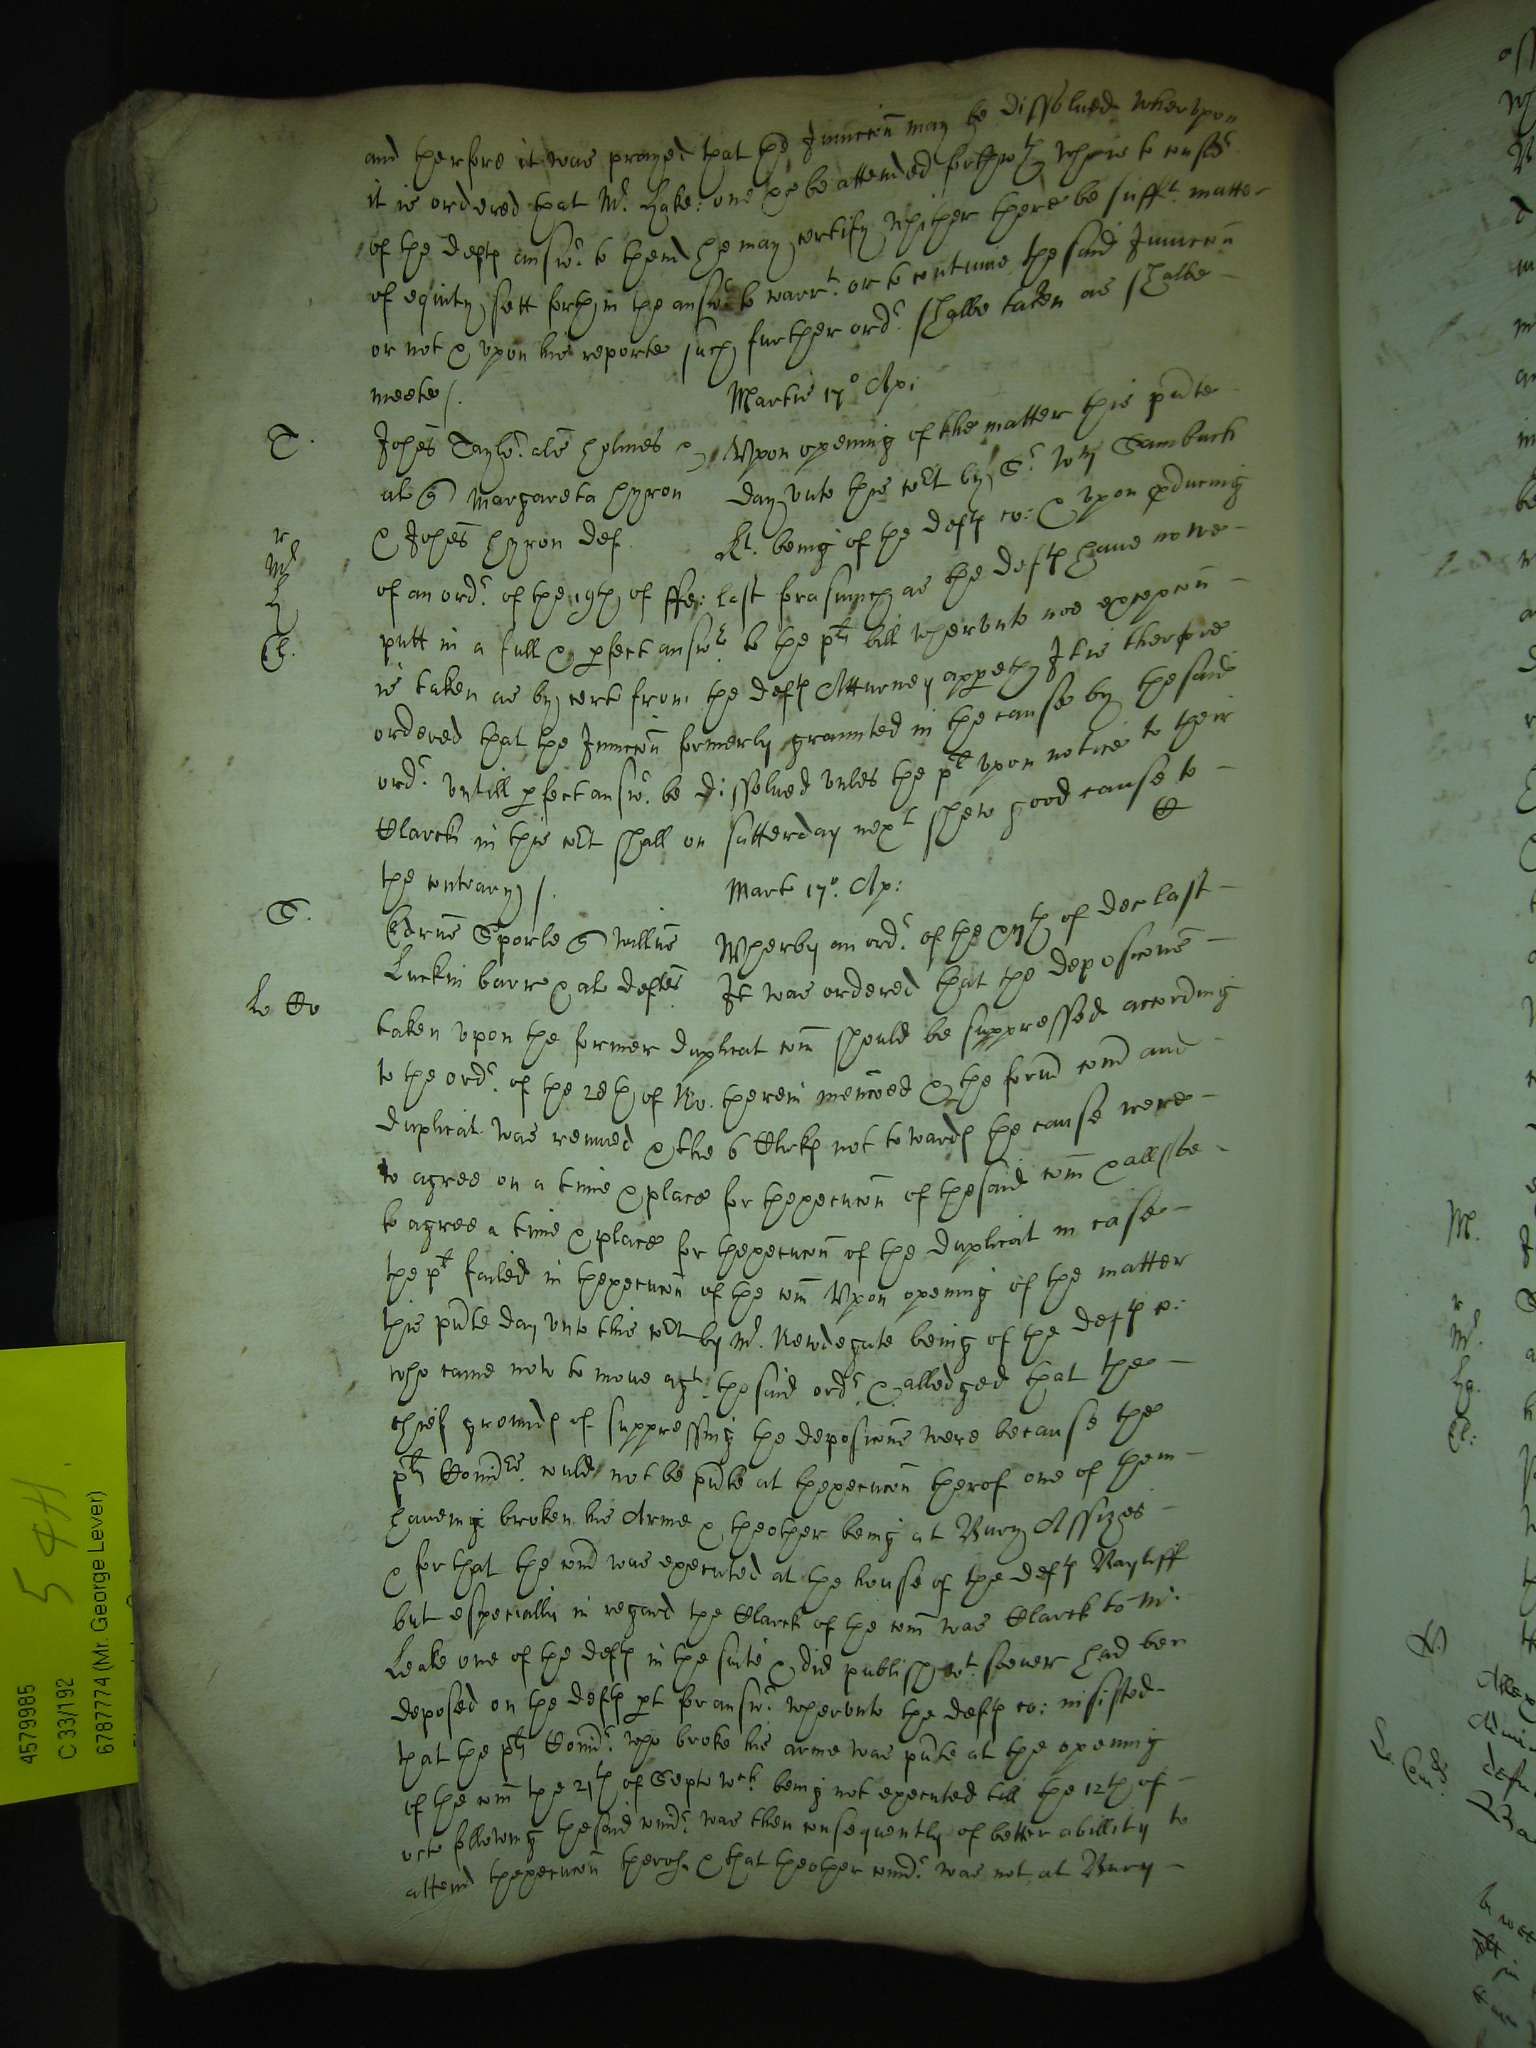 and therfore it was prayed that the Iniunccon may be dissolued wherupon
it is ordered that Mr. Hake: one &c be attended forthwth who is to consider
of the defts answr. to thend he may certify whither there be sufft. matter
of equity sett forth in the answr to warrt. or to contynue the said Iniunccon
or not & vpon his reporte such further ordr. shalbe taken as shalbe
meete /.
Martis 17o Ap:
T.
Johes Taylor. als holmes &
Vpon opening of the matter this pnte
al q Margareta hyron
day vnto this cort by Sr. Wm Sambach
& Johes hyron def.
Kt. being of the defts co: & vpon producing
r
Mr
H
Cl.
of an ordr. of the 19th of ffe: last forasmuch as the defts haue nowe
putt in a full & perfect answr. to the plts bill wherunto noe excepcon
is taken as by cert from the defts Atturney appeareth It is therfore
ordered that the Iniunccon formerly graunted in the cause by the said
ordr. vntill perfect answr. be dissolued vnles the plt vpon notice to their
Clarck in this cort shall on satterday next shew good cause to
the contrary /.
Mart 17o. Ap:
S.
Edrus Sporle q Willus
Wherby an ordr. of the xvijth of Dec last
Luckin barr & al deftes
It was ordered that the deposicons
Lo Co
taken vpon the former duplicat com should be suppressed according
to the ordr. of the 28th of No. therein mencoed & the form com and
duplicat was renued & the 6 Clerks not towards the cause were
to agree on a time & place for thexecucon of the said com & allsoe
to agree a time & place for thexecucon of the duplicat in case
the plt failed in thexecucon of the com Vpon opening of the matter
this pnte day vnto this cort by Mr. Newdegate being of the defts co:
who came now to moue agt. the said ordr. & alledged that the
chief grounds of suppressing the deposicons were because the
plts Comrs. could not be pnte at thexecucon therof one of them
haueing broken his Arme & theother being at Bury Assizes
& for that the com was executed at the house of the deft Bayliff
but especially in regard the Clarck of the com was Clarck to Mr.
Leake one of the defts in the suite & did publish wt. soeuer had ben
deposed on the defts pt for answr. wherunto the defts co: insisted
that the plts Comr. who broke his arme was pnte at the opening
of the com the 21th of Septo wch. being not executed till the 12th of
octo following the said comr. was then consequently of better abillity to
attend thexecucon therof & that theother comr. was not at Bury
4579985
C 33/192
6787774 (Mr. George Lever)